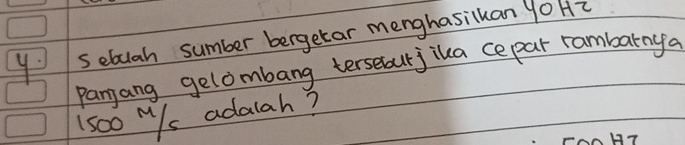 4. sebuah sumber bergetar menghasilkan 40 Hz
panjang gelombang tersebut jika cepat rambatnya
1500 M/s adalah?
500 Hz